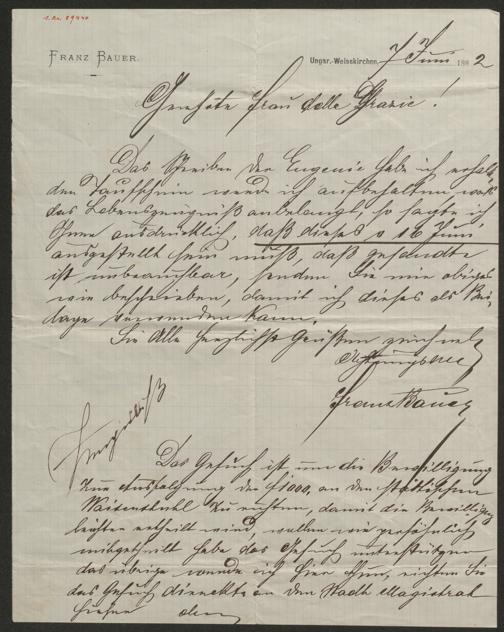 FRANZ BAUER.
Ungar.-Weisskirchen, 7 Juni 1882
Geehrte Frau delle Grazie!
Das Schreiben der Eugenie habe ich erhalten,
den Taufschein werde ich aufbehalten was
das Lebenszeugniß anbelangt, so sagte ich
Ihnen ausdrücklich, daß dieses v 16 Juni
ausgestellt sein muß, daß gesendte
ist unbrauchbar, senden Sie mir obiges
wie beschrieben, damit ich dieses als Bei,
lage verwenden kann.
Sie Alle herzlichst Grüßen zeichnet
Achtungsvoll
Franz Bauer
Das Gesuch ist um die Bewilligung
zur Ausfolgung der f 1000, an den städtischen
Waisenstuhl zu richten, damit die Bewilligung
leichter ertheilt wird, wollen sie persönlich
mitgetheilt habe das Gesuch unterstützen
das übrige werde ich hier thun, richten Sie
das Gesuch direckte an den Stadt Magistrat